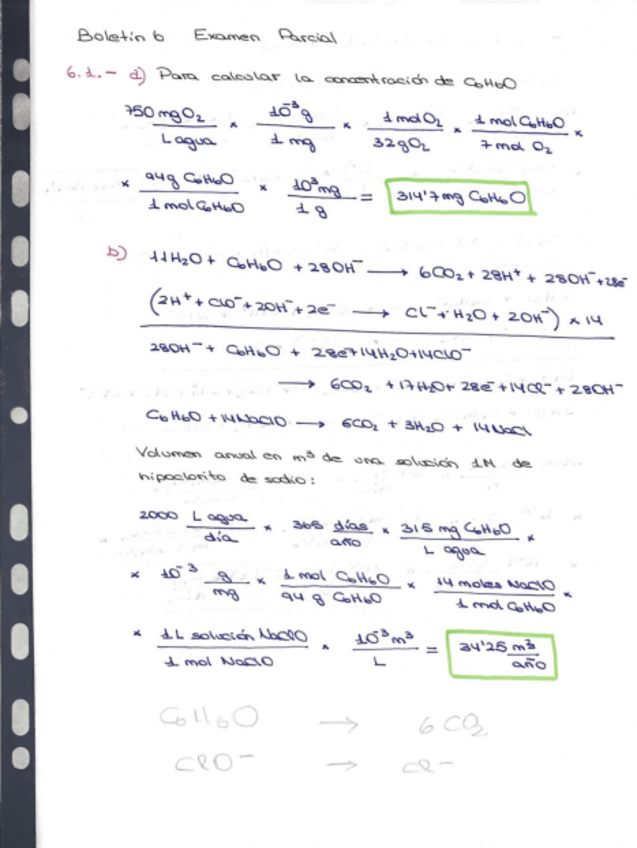 Boletín 6 Examen Parcial
6.1.- a) Para calcular la concentración de C6H6O
750 mg O2 / L agua × 10^-3 g / 1 mg × 1 mol O2 / 32 g O2 × 1 mol C6H6O / 7 mol O2 ×
× 94 g C6H6O / 1 mol C6H6O × 10^3 mg / 1 g = 314'7 mg C6H6O
b) 11H2O + C6H6O + 28OH^- → 6CO2 + 28H^+ + 28OH^- + 28e^-
(2H^+ + ClO^- + 2OH^- + 2e^- → Cl^- + H2O + 2OH^-) × 14
28OH^- + C6H6O + 28e^- + 14H2O + 14ClO^-
→ 6CO2 + 17H2O + 28e^- + 14Cl^- + 28OH^-
C6H6O + 14NaClO → 6CO2 + 3H2O + 14NaCl
Volumen anual en m^3 de una solución 1M de
hipoclorito de sodio:
2000 L agua / día × 365 días / año × 315 mg C6H6O / L agua ×
× 10^-3 g / mg × 1 mol C6H6O / 94 g C6H6O × 14 moles NaClO / 1 mol C6H6O ×
× 1L solución NaClO / 1 mol NaClO × 10^-3 m^3 / L = 34'25 m^3 / año
C6H6O → 6CO2
ClO^- → Cl^-